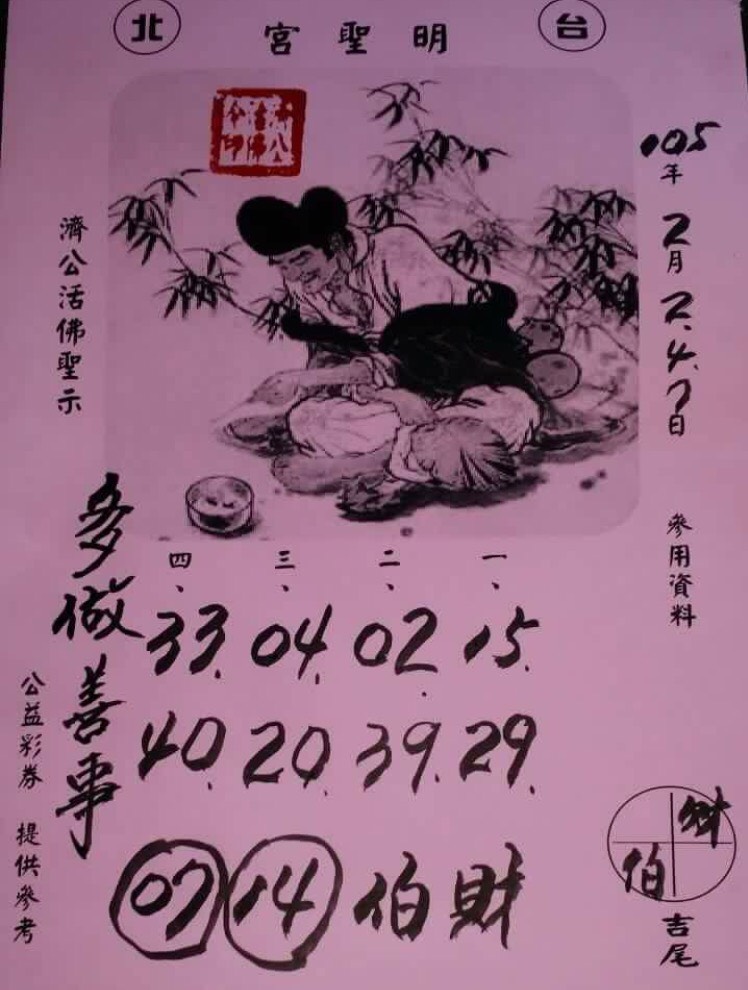 台北
明聖宮
105年2月2.4.7日 參用資料
濟公活佛聖示
多做善事
一、 二、 三、 四、
15. 02. 04. 33.
29. 39. 20. 40.
財伯 14 07
財
伯
吉尾
公益彩券 提供參考